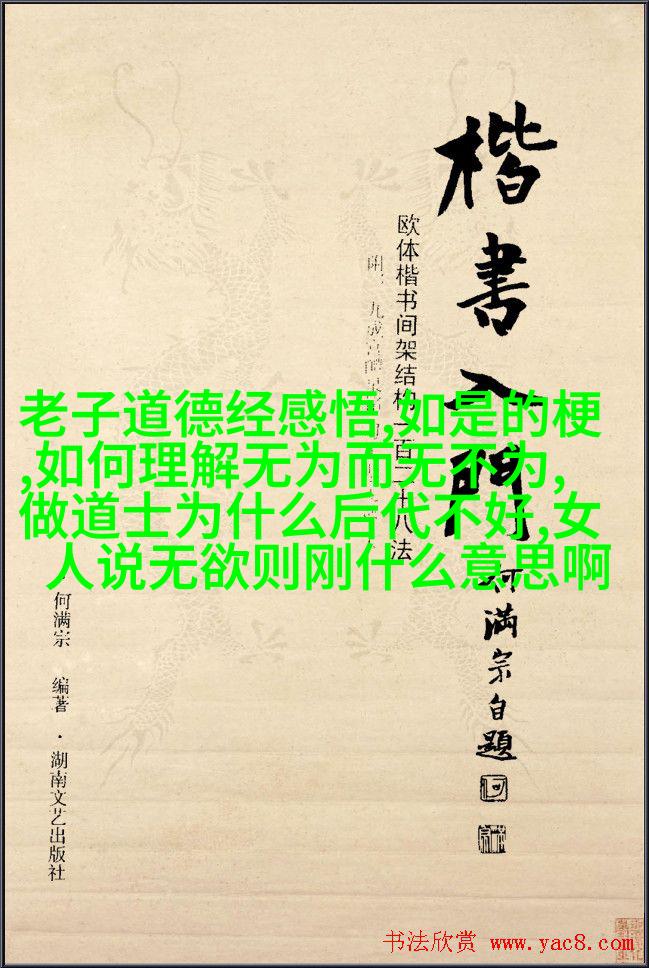 楷書入門
欧体楷书间架结构一百二十八法
老子道德经感悟,如是的梗
,如何理解无为而无不为,
做道士为什么后代不好,女
人说无欲则刚什么意思啊
何满宗自题
何满宗 编著·湖南文艺出版社
书法欣赏 www.yac8.com